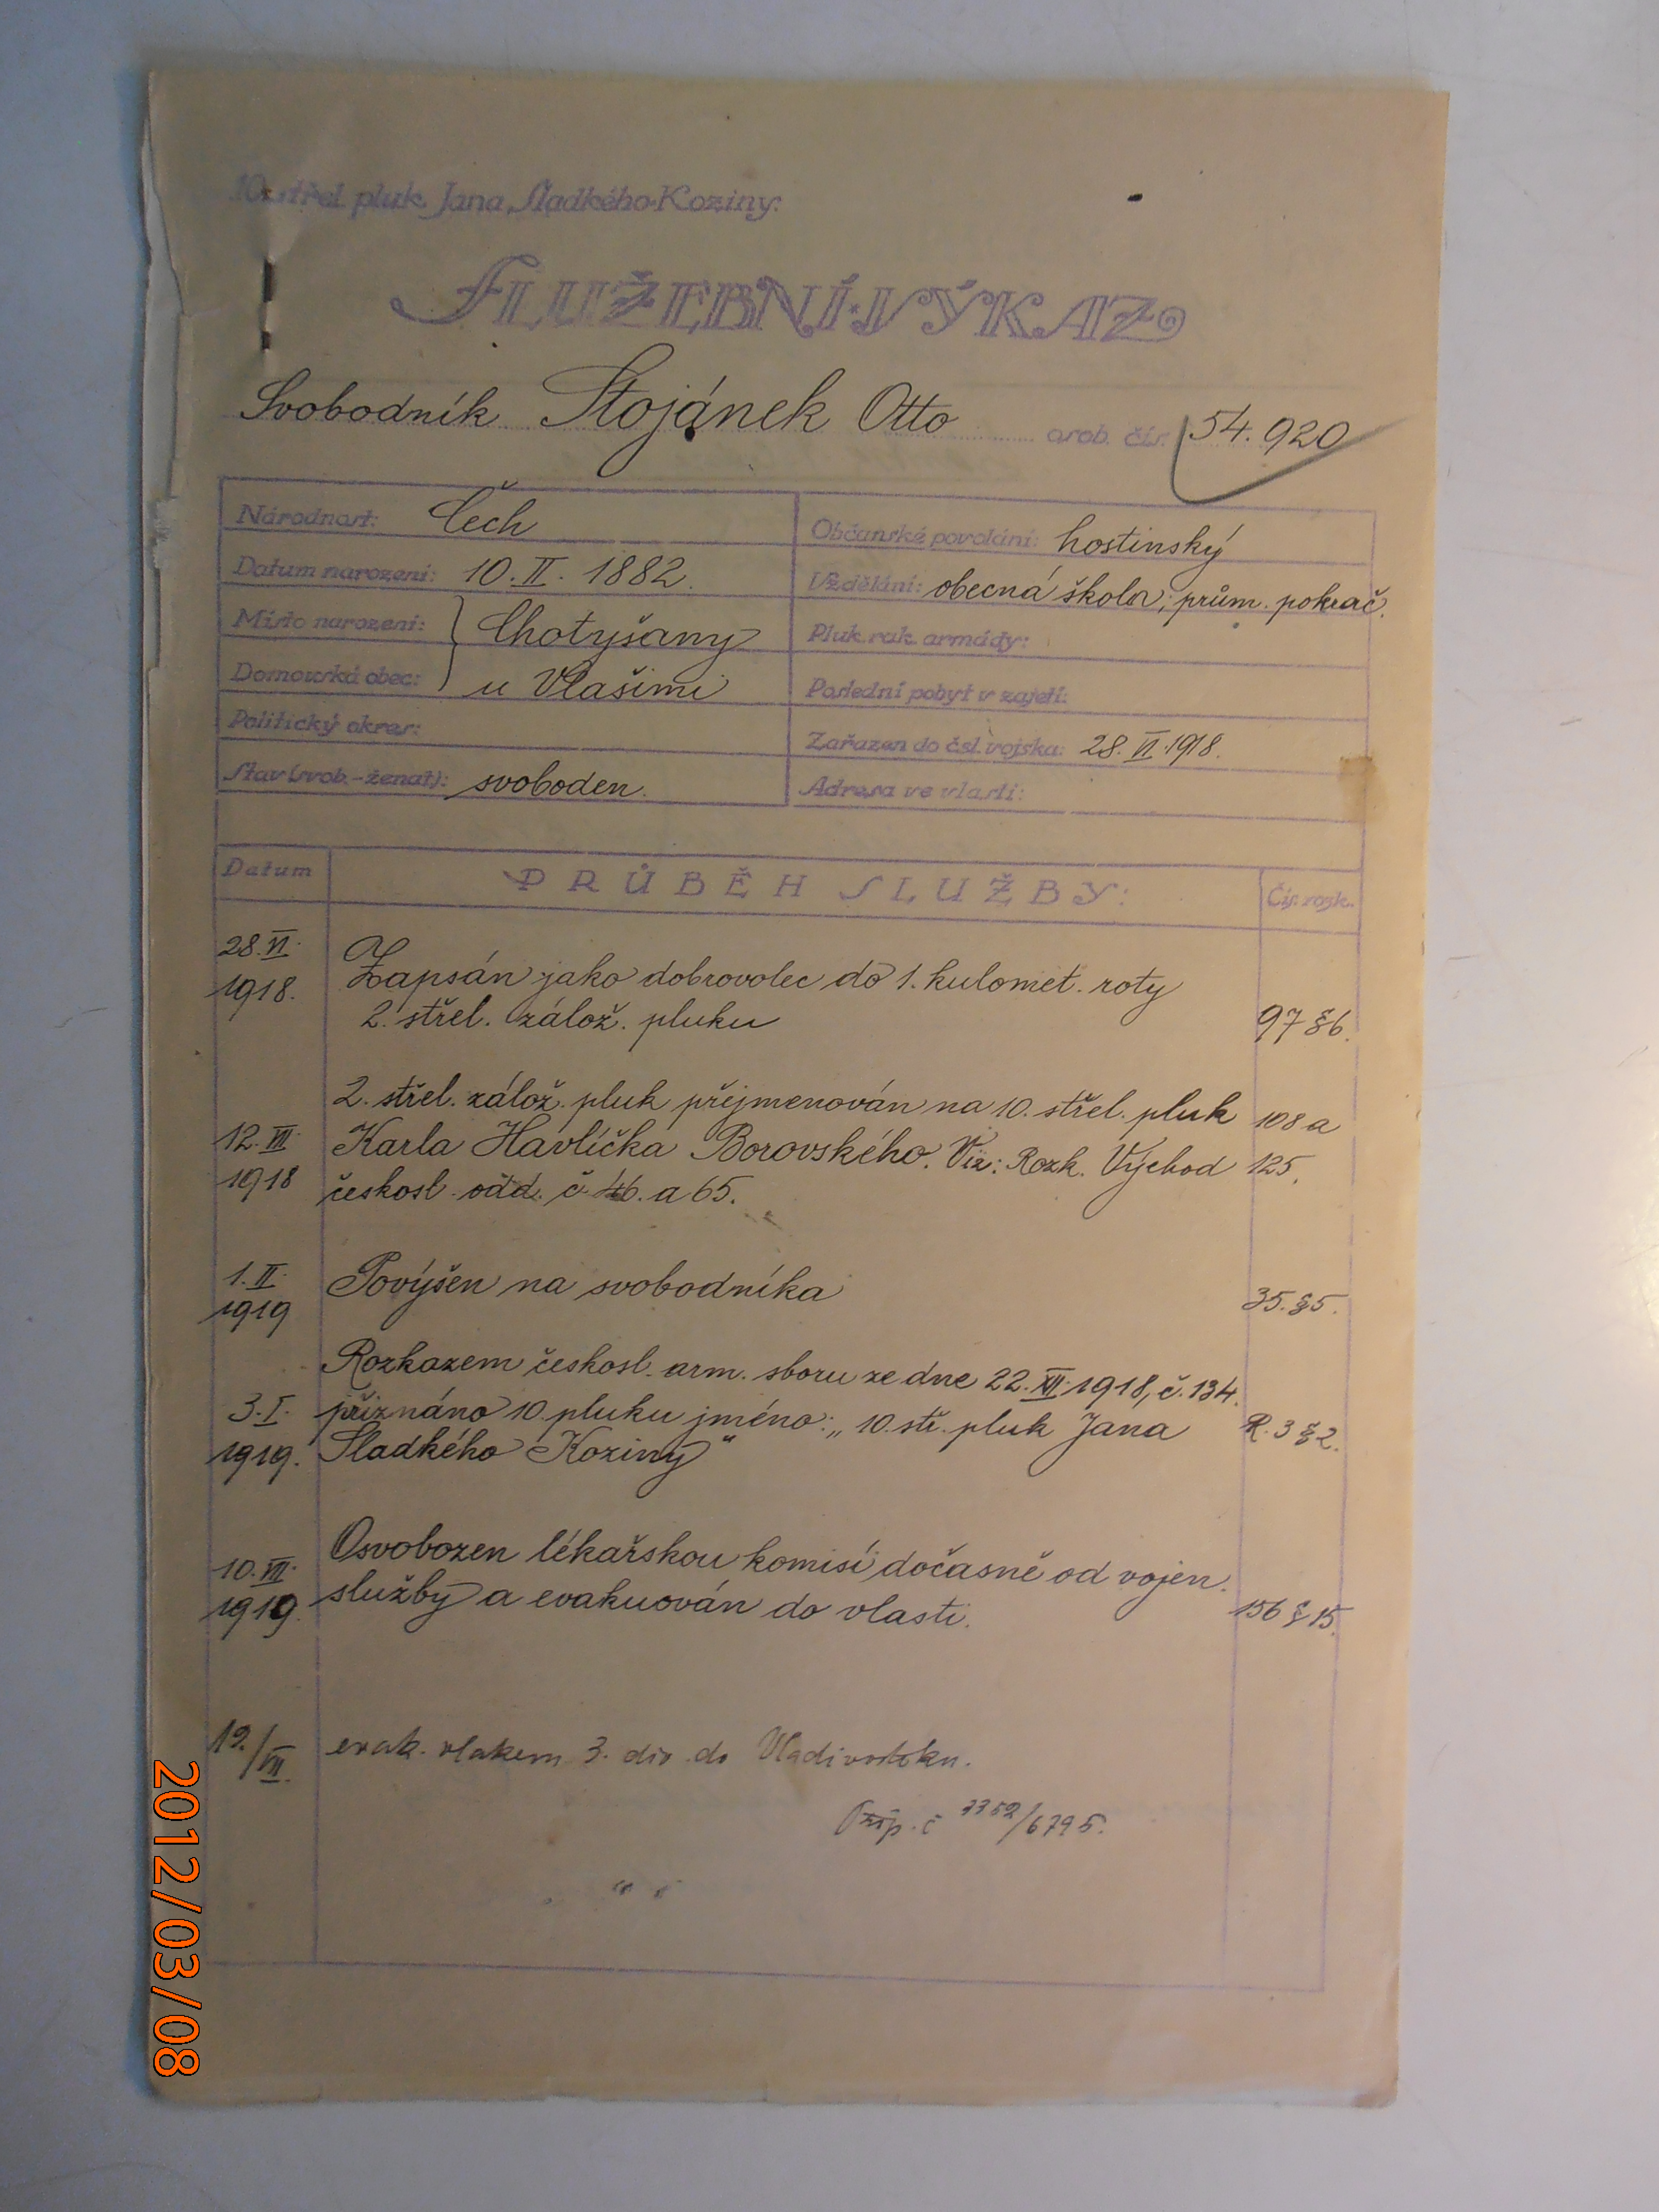 10. střel. pluk Jana Sladkého-Koziny.
SLUŽEBNÍ VÝKAZ
Svobodník Stojánek Otto osob. čís. 54.920
Národnost: Čech
Datum narození: 10. II. 1882.
Místo narození: } Chotyšany
Domovská obec: } u Vlašimi
Politický okres:
Stav (svob.-ženat): svoboden.
Občanské povolání: hostinský
Vzdělání: obecná škola, prům. pokrač.
Pluk rak. armády:
Poslední pobyt v zajetí:
Zařazen do čsl. vojska: 28. VI. 1918.
Adresa ve vlasti:
Datum PRŮBĚH SLUŽBY: Čís. rozk.
28. VI.
1918. Zapsán jako dobrovolec do 1. kulomet. roty
2. střel. zálož. pluku 97 §6.
2. střel. zálož. pluk přejmenován na 10. střel. pluk 108 a
12. VIII. Karla Havlíčka Borovského. Viz: Rozk. Východ 125.
1918 českosl. odd. č. 46. a 65.
1. II. Povýšen na svobodníka
1919 35. §5.
Rozkazem českosl. arm. sboru ze dne 22. XII. 1918, č. 134.
3. I. přiznáno 10. pluku jméno: „10. stř. pluk Jana R. 3 §2.
1919. Sladkého Koziny“
Osvobozen lékařskou komisí dočasně od vojen.
10. VII. služby a evakuován do vlasti.
1919. 156 § 15.
19./VII. evak. vlakem 3. div. do Vladivostoku.
6795.
2012/03/08